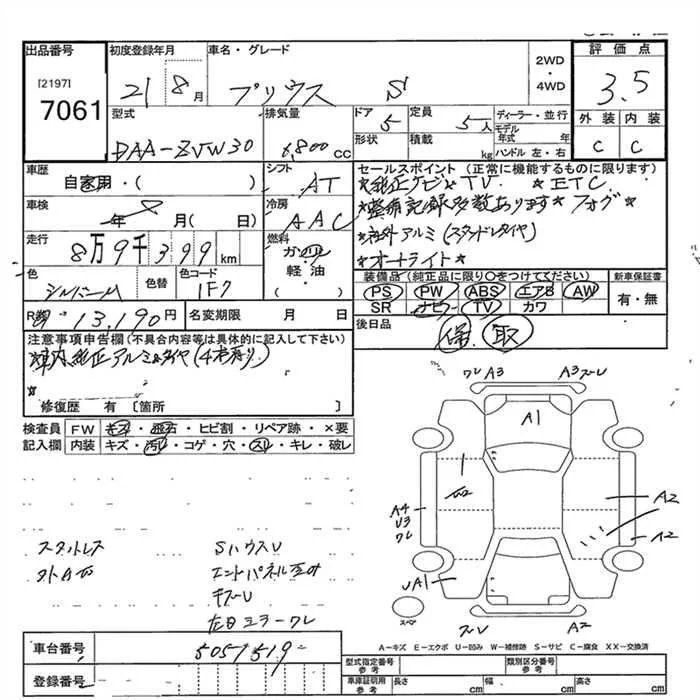 出品番号 初度登録年月 車名・グレード 評価点
[2197]
7061
21 8月 プリウス S
2WD
4WD
3.5
型式 排気量 ドア 定員 ディーラー・並行 外装 内装
DAA-ZVW30 1,800cc 5 5人 モデル年式 年
形状 積載 kg ハンドル 左・右 C C
車歴 シフト セールスポイント (正常に機能するものに限ります)
自家用・( ) AT ★純正ナビ★TV ★ETC
車検 冷房 ★整備記録多数あります★フォグ★
年 8月( 日) AAC ★社外アルミ(スタッドレスタイヤ)
走行 燃料 ★オートライト★
8万9千399km ガソリン
軽・油
( )
色 色替 色コード 装備品(純正品に限り○をつけてください) 新車保証書
シルバーM 1F7 PS PW ABS エアB AW 有・無
SR ナビ TV カワ
R券 13,190円 名変期限 月 日 後日品 保 取
注意事項申告欄(不具合内容等は具体的に記入して下さい)
★車内純正アルミ&タイヤ(4本有り)
★
修復歴 有 [箇所 ]
検査員 FW キズ・飛石・ヒビ割・リペア跡・×要
記入欄 内装 キズ・汚れ・コゲ・穴・スレ・キレ・破レ
ワレ A3 A3 ズーレ
A1
A4
U3
ワレ
A2
A2
UA1
ズーレ A2
スペア
スタットレス SハウスU
エンドパネル
キズーU
左目ミラーワレ
A-キズ E-エクボ U-凹み W-補修跡 S-サビ C-腐食 XX-交換済
車台番号 5057519
登録番号
型式指定番号 参考 類別区分番号 参考
車庫証明用 参考 長さ cm 幅 cm 高さ cm